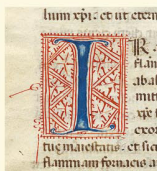 lium xp̄i. et ut etern
I R.
flam
abal
mitt
xp̄e
exor
tue maiestatis. et fic
flammam fornacis a